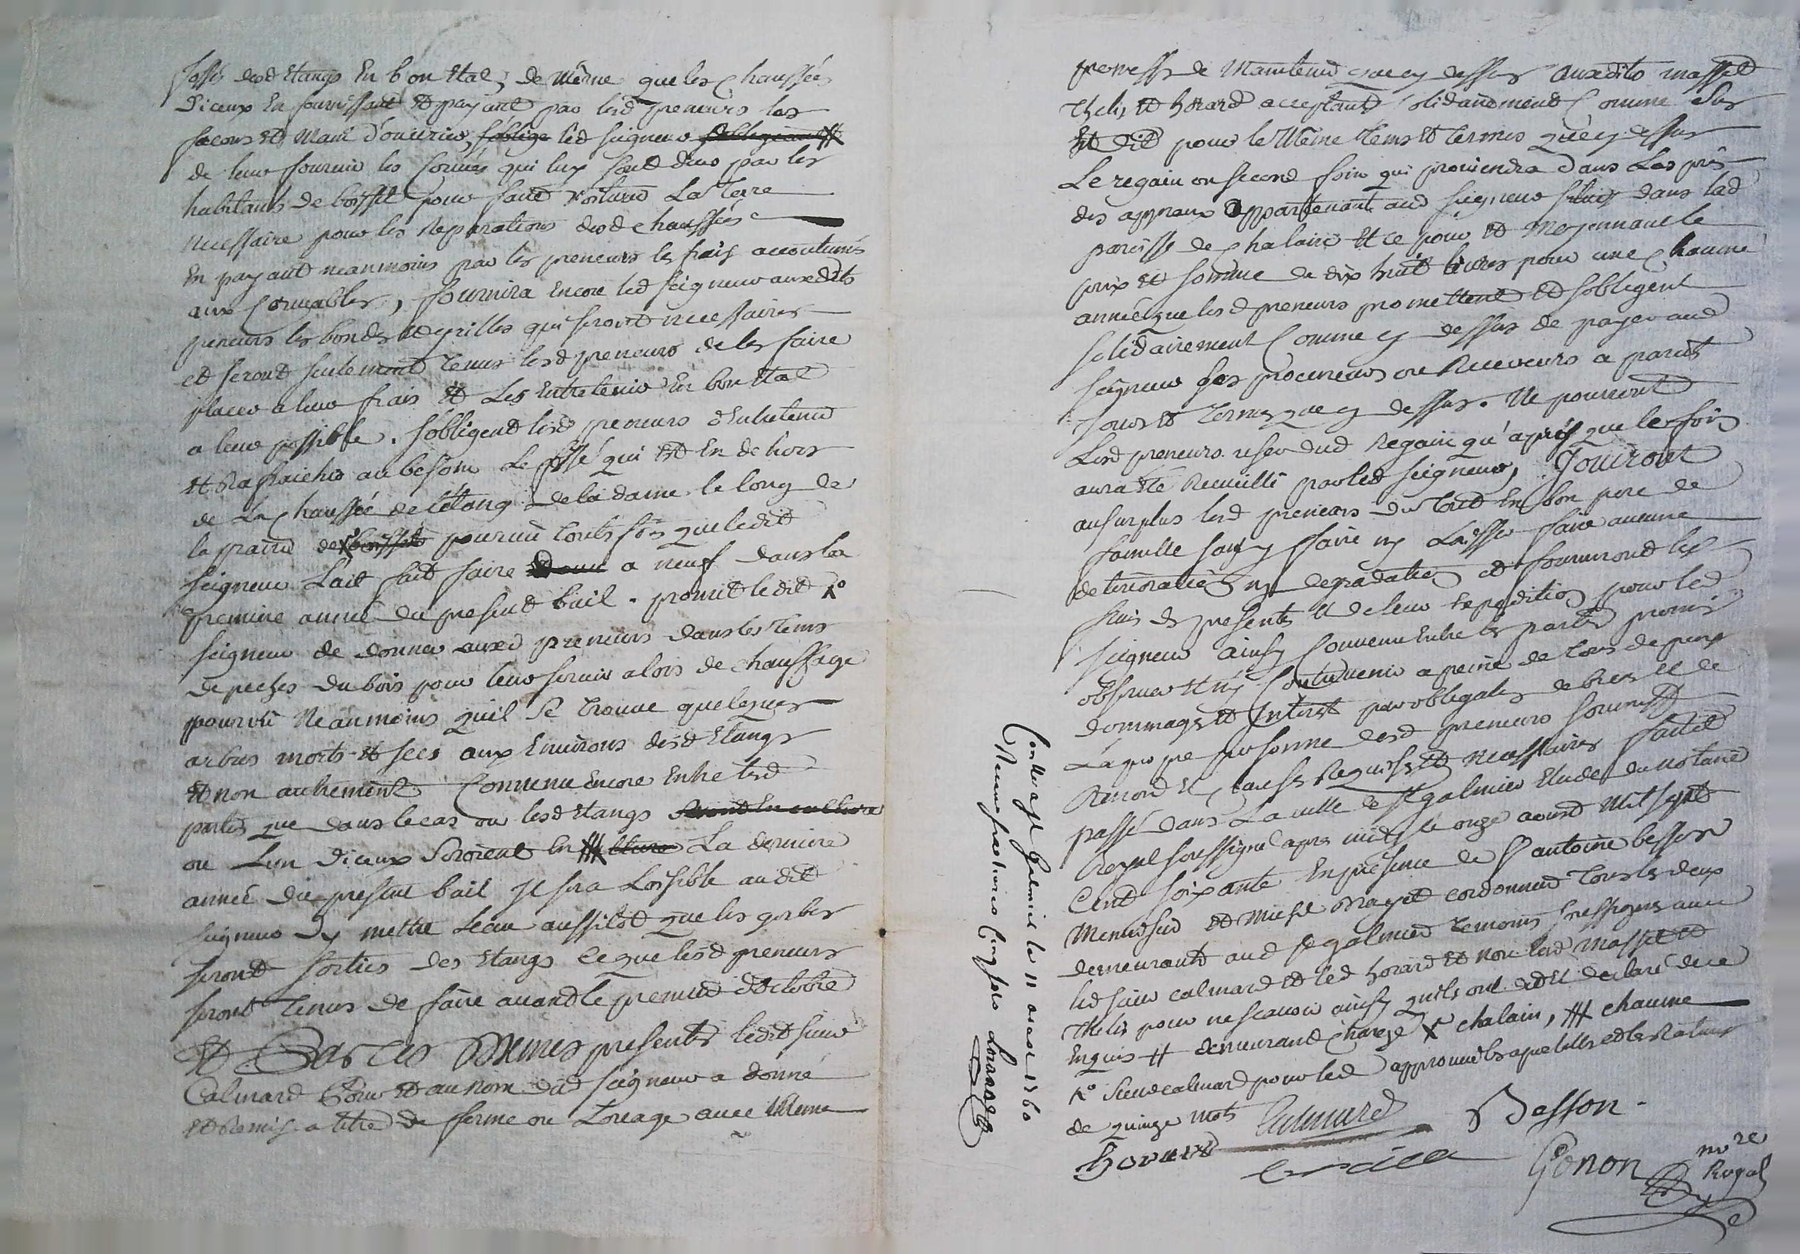 fossés desd Etangs En bon Etat, de même que les chaussées
d'iceux En fournissant et payant par lesd preneurs les
facons et main d'ouvries, s'oblige led seigneur
de leur fournir les corvées qui luy sont dues par les
habitans de boisset pour faire voiturer La terre
necessaire pour les Reparations desd chaussées
En payant neanmoins par les preneurs les frais accoutumés
aux Corveables, fournira Encore led seigneur auxdits
preneurs les bondes et grilles qui seront necessaires
et seront seulement tenus lesd preneurs de les faire
placer a leur frais et Les Entretenir En bon Etat
a leur possible. s'obligent lesd preneurs d'Entretenir
et Rafraichir au besoin Le fossé qui Est En dehors
de La chaussée de l'Etang de la dame le long de
la prairie de boisset pourvu toutes fois que ledit
seigneur L'ait fait faire a neuf dans la
premiere année du present bail. promet ledit x°
seigneur de donner auxd preneurs dans les tems
de peches du bois pour leur servir a lors de chauffage
pourvu Neanmoins qu'il se trouve quelques
arbres morts et secs aux Environs desd Etangs
et non autrement Convenu Encore Entre led
parties que dans le cas ou lesd Etangs seront En culture
ou L'un d'iceux seroient En La derniere
année du present bail Il sera Loisible audit
seigneur d'y mettre L'eau aussitôt que les gerbes
seront sorties des Etangs ce que lesd preneurs
seront tenus de faire avant le premier d'octobre
et Par ces Memes presentes ledit sieur
Calmard Pour et au nom dud seigneur a donné
et Remis a titre de ferme ou Louage avec meme
promesse de Maintenir que cy dessus auxdits massett
thelis et horard acceptants solidairement Comme dit
Est pour le Même tems et termes que cy dessus
Le regain ou second foin qui proviendra dans Les prés
des appreaux appartenant aud seigneur situés dans lad
paroisse de chalain Et ce pour et Moyennant le
prix et somme de dix huit livres pour une chacune
année que lesd preneurs promettent et s'obligent
solidairement Comme cy dessus de payer aud
seigneur ses procureurs ou Receveurs a pareils
jours et termes que cy dessus. Ne pourront
Lesd preneurs user dud Regain qu'après que les foins
aura Eté Recueilli par led seigneur, Jouiront
au surplus lesd preneurs du tout En bon pere de
famille sans y faire ny Laisser faire aucune
deterioration ny degradation et fourniront les
frais des presentes et de leur Expedition pour led
seigneur ainsy Convenu Entre les parties promis
observer et n'y Contrevenir a peine de tous depens
dommages et Interets par obligation de biens et de
La propre personne desd preneurs soumis
Renoncé et clauses Requises et necessaires fait et
passé dans La ville de St galmier Etude du notaire
Royal soussigné apres midy le onze aoust Mil sept
Cent soixante En presence de S antoine besson
Menuisier et Michel mayet cordonnier tous les deux
demeurants aud St galmier temoins soussignés avec
led sieur calmard et led horard et non lesd Massett et
thelis pour ne scavoir ainsy qu'ils ont dit et declaré de ce
Enquis # demeurand Charge X chalain, ### chacune
x° sieur calmard pour led approuvé les apostilles et les Ratures
de quinze mots Calmard Besson
horard
Genon nore
Royal
Controllé a St Galmier le 11 aoust 1760